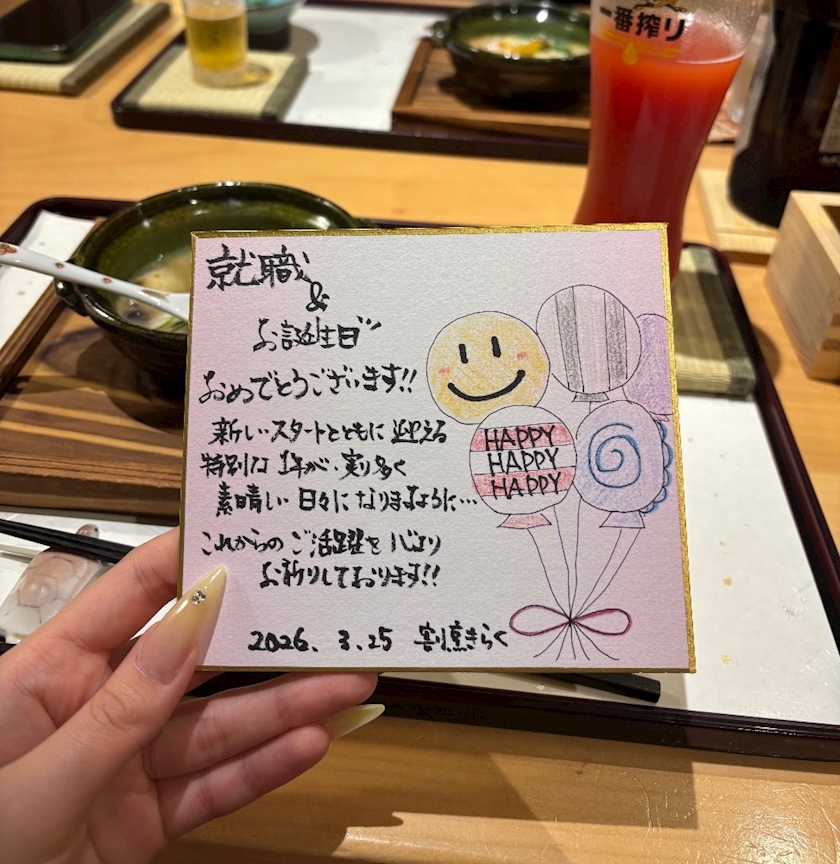 一番搾り
就職
&
お誕生日
おめでとうございます!!
新しいスタートとともに迎える
特別な1年が、実り多く
素晴しい日々になりますように…
これからのご活躍を心より
お祈りしております!!
2026. 3. 25 割烹きらく
HAPPY
HAPPY
HAPPY